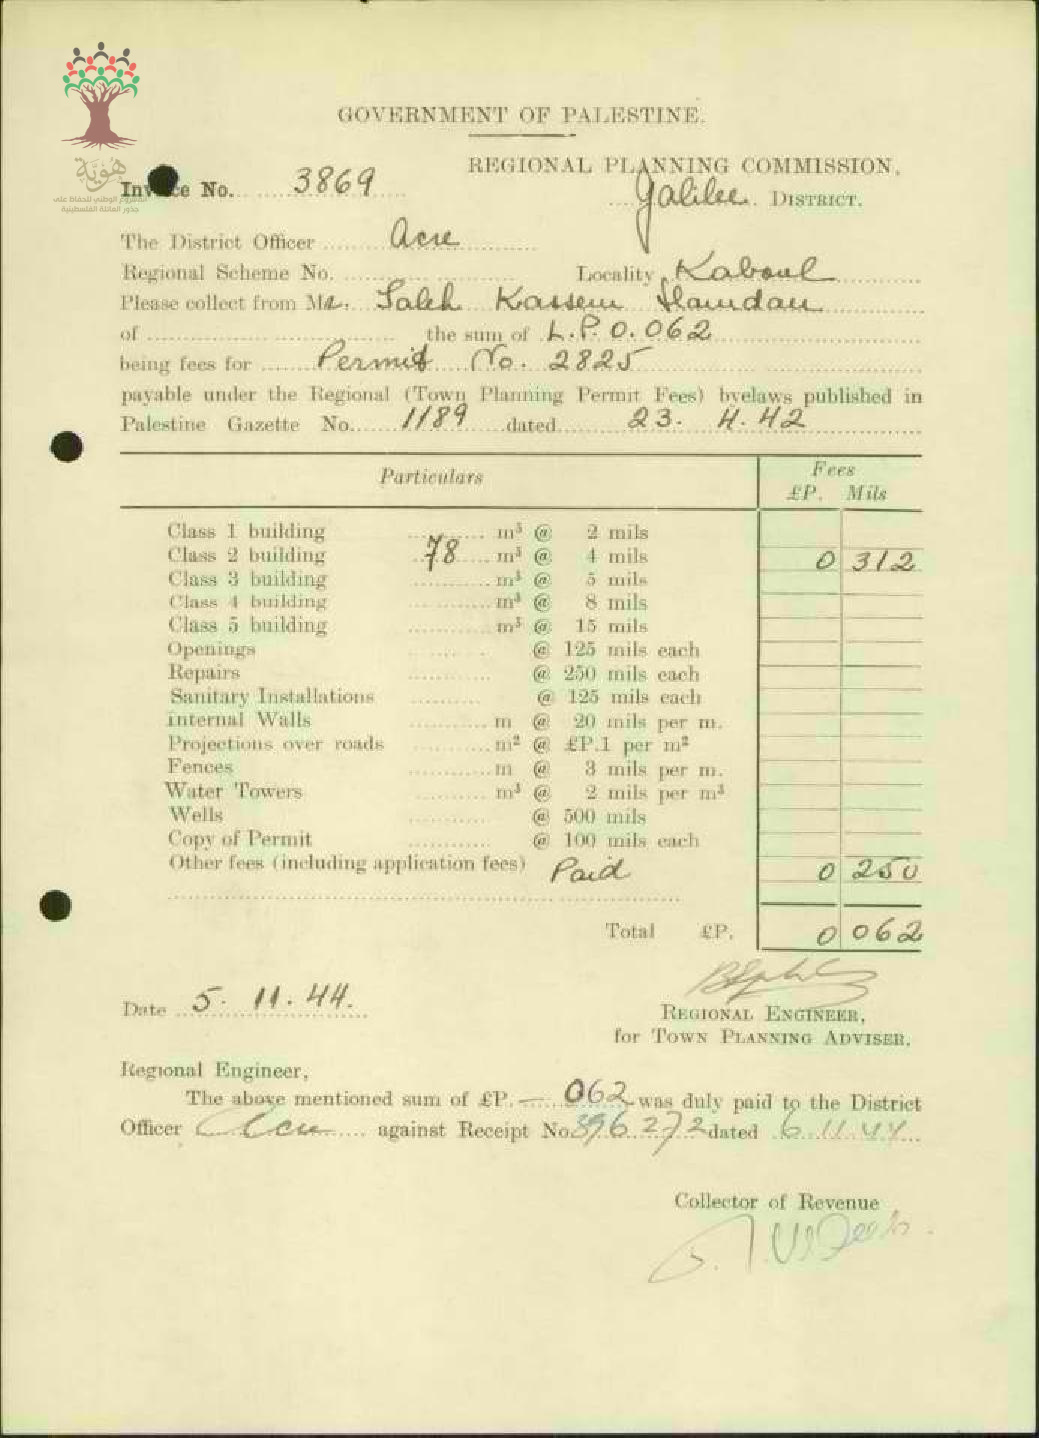 GOVERNMENT OF PALESTINE.
REGIONAL PLANNING COMMISSION,
Invoice No. 3869
Galilee DISTRICT.
هُوِيَّة
المشروع الوطني للحفاظ على
جذور العائلة الفلسطينية
The District Officer Acre
Regional Scheme No. Locality Kaboul
Please collect from Mr. Saleh Kassem Hamdan
of the sum of L.P. 0.062
being fees for Permit No. 2825
payable under the Regional (Town Planning Permit Fees) byelaws published in
Palestine Gazette No. 1189 dated 23. 4. 42
Particulars Fees
£P. Mils
Class 1 building m³ @ 2 mils
Class 2 building 78 m³ @ 4 mils 0 312
Class 3 building m³ @ 5 mils
Class 4 building m³ @ 8 mils
Class 5 building m³ @ 15 mils
Openings @ 125 mils each
Repairs @ 250 mils each
Sanitary Installations @ 125 mils each
Internal Walls m @ 20 mils per m.
Projections over roads m² @ £P.1 per m²
Fences m @ 3 mils per m.
Water Towers m³ @ 2 mils per m³
Wells @ 500 mils
Copy of Permit @ 100 mils each
Other fees (including application fees) Paid 0 250
Total £P. 0 062
Date 5. 11. 44.
REGIONAL ENGINEER,
for TOWN PLANNING ADVISER.
Regional Engineer,
The above mentioned sum of £P. — 062 was duly paid to the District
Officer Acre against Receipt No. 396272 dated 6.11.44
Collector of Revenue